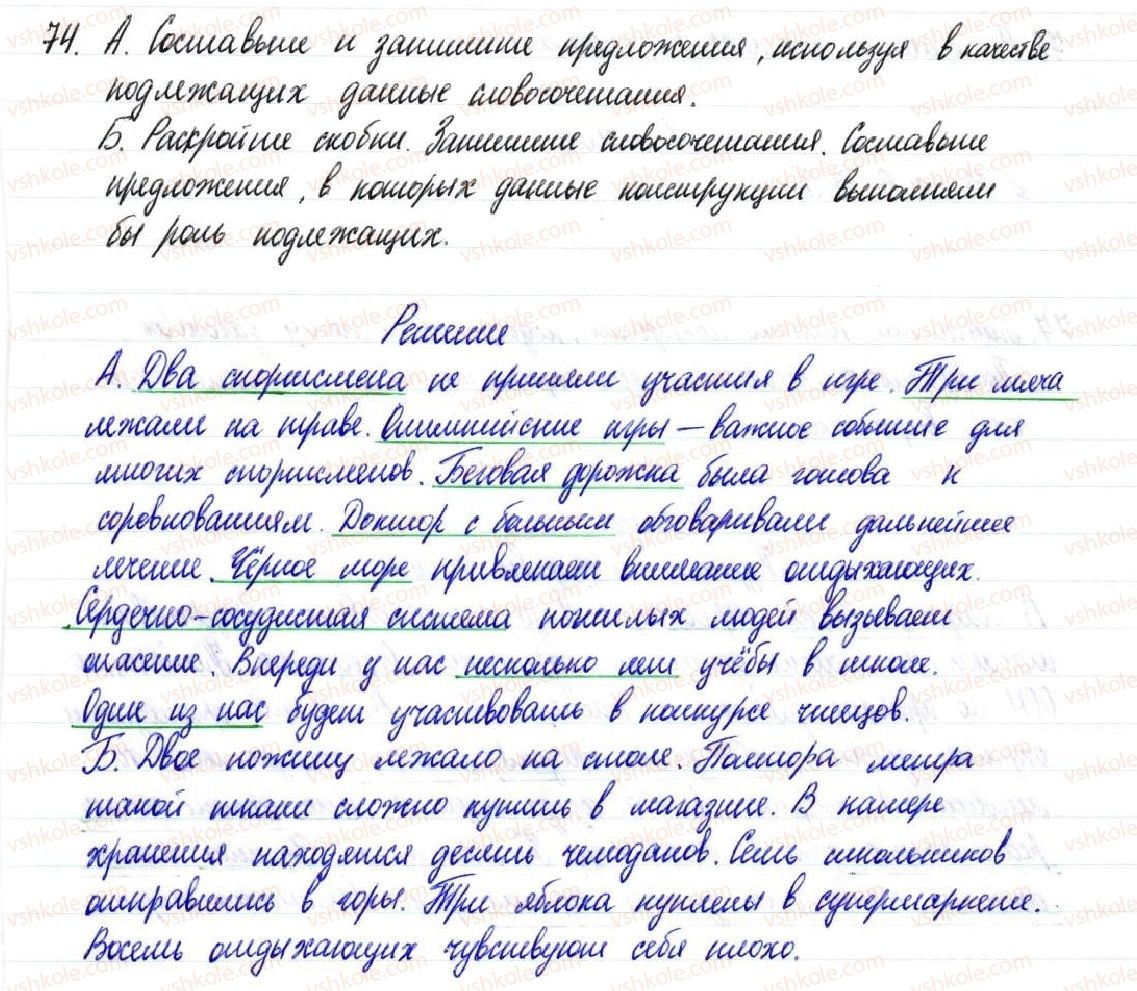 74. А. Составьте и запишите предложения, используя в качестве
подлежащих данные словосочетания.
Б. Раскройте скобки. Запишите словосочетания. Составьте
предложения, в которых данные конструкции выполняли
бы роль подлежащих.
Решение
А. Два спортсмена не приняли участия в игре. Три мяча
лежали на траве. Олимпийские игры – важное событие для
многих спортсменов. Беговая дорожка была готова к
соревнованиям. Доктор с больным обговаривали дальнейшее
лечение. Чёрное море привлекает внимание отдыхающих.
Сердечно-сосудистая система пожилых людей вызывает
опасение. Впереди у нас несколько лет учёбы в школе.
Один из нас будет участвовать в конкурсе чтецов.
Б. Двое ножниц лежало на столе. Полтора метра
такой ткани сложно купить в магазине. В камере
хранения находятся десять чемоданов. Семь школьников
отправились в горы. Три яблока куплены в супермаркете.
Восемь отдыхающих чувствуют себя плохо.